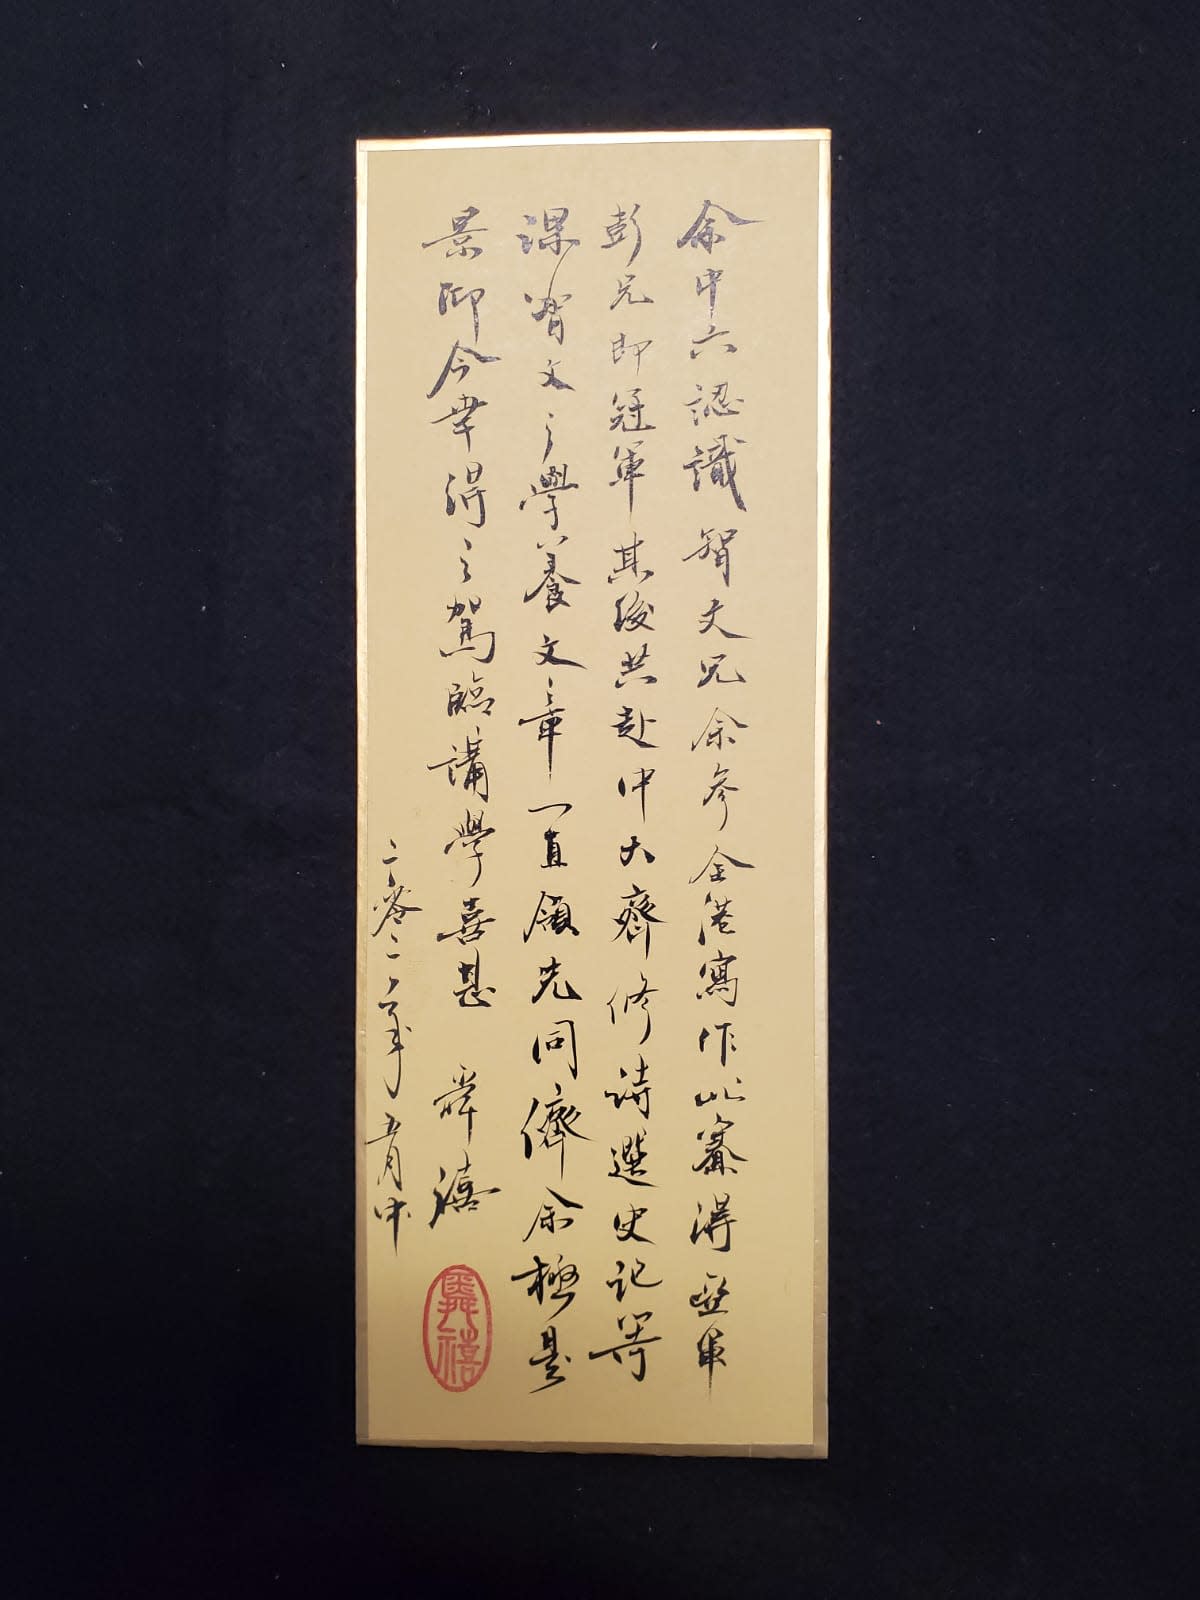 余中六認識智文兄余參全港寫作比賽得亞軍
彭兄即冠軍其後共赴中大齊修詩選史記等
課智文之學養文章一直領先同儕余極是
景仰今幸得之駕臨講學喜甚 舜禧
二零二二年五月中
舜禧